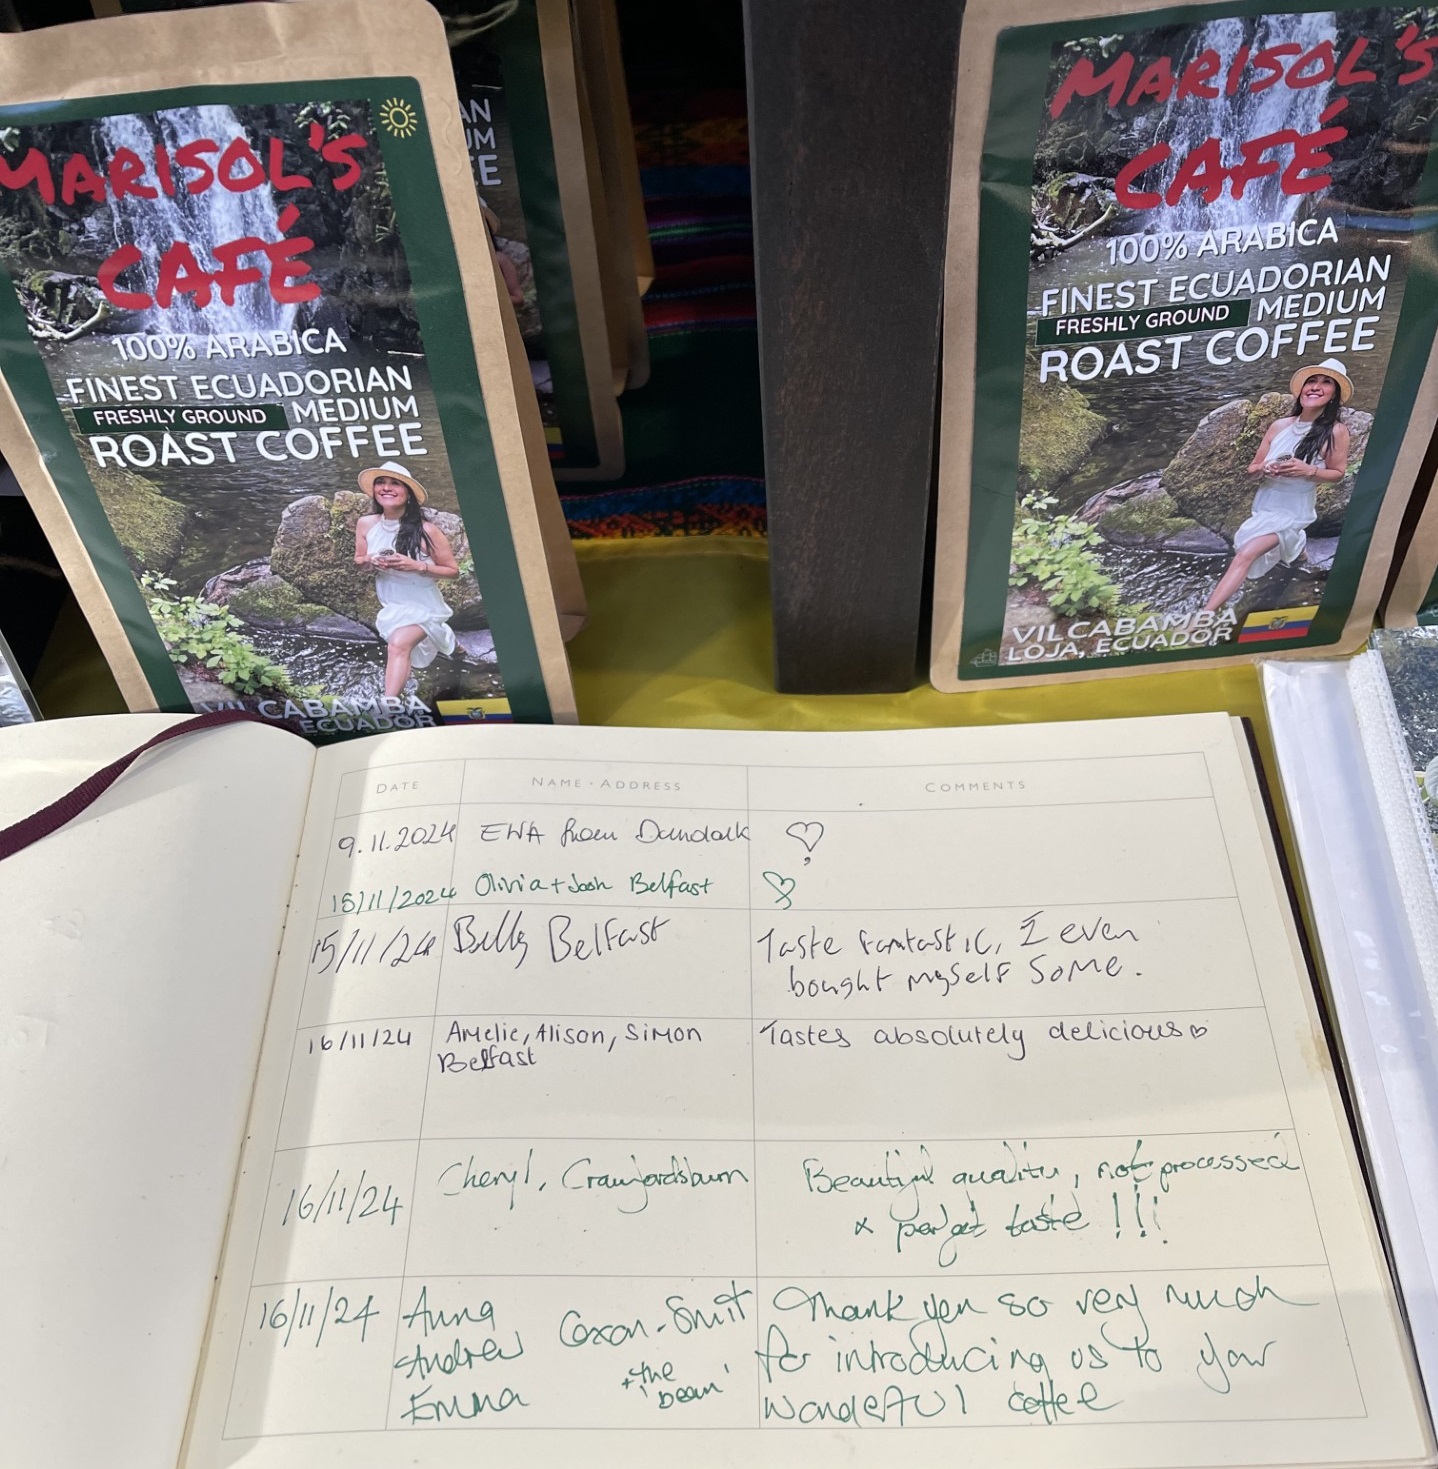 MARISOL'S
CAFÉ
100% ARABICA
FINEST ECUADORIAN
FRESHLY GROUND MEDIUM
ROAST COFFEE
VILCABAMBA
ECUADOR
AN
UM
EE
MARISOL'S
CAFÉ
100% ARABICA
FINEST ECUADORIAN
FRESHLY GROUND MEDIUM
ROAST COFFEE
VILCABAMBA
LOJA, ECUADOR
DATE NAME · ADDRESS COMMENTS
9.11.2024 EWA from Dundalk
15/11/2024 Olivia + Josh Belfast
15/11/24 Billy Belfast Taste fantastic, I even
bought myself some.
16/11/24 Amelie, Alison, Simon Tastes absolutely delicious
Belfast
16/11/24 Cheryl, Crawfordsburn Beautiful quality, not processed
& perfect taste!!!
16/11/24 Anna Coxon-Smit Thank you so very much
Andrew + 'the for introducing us to your
Emma bean' wonderful coffee